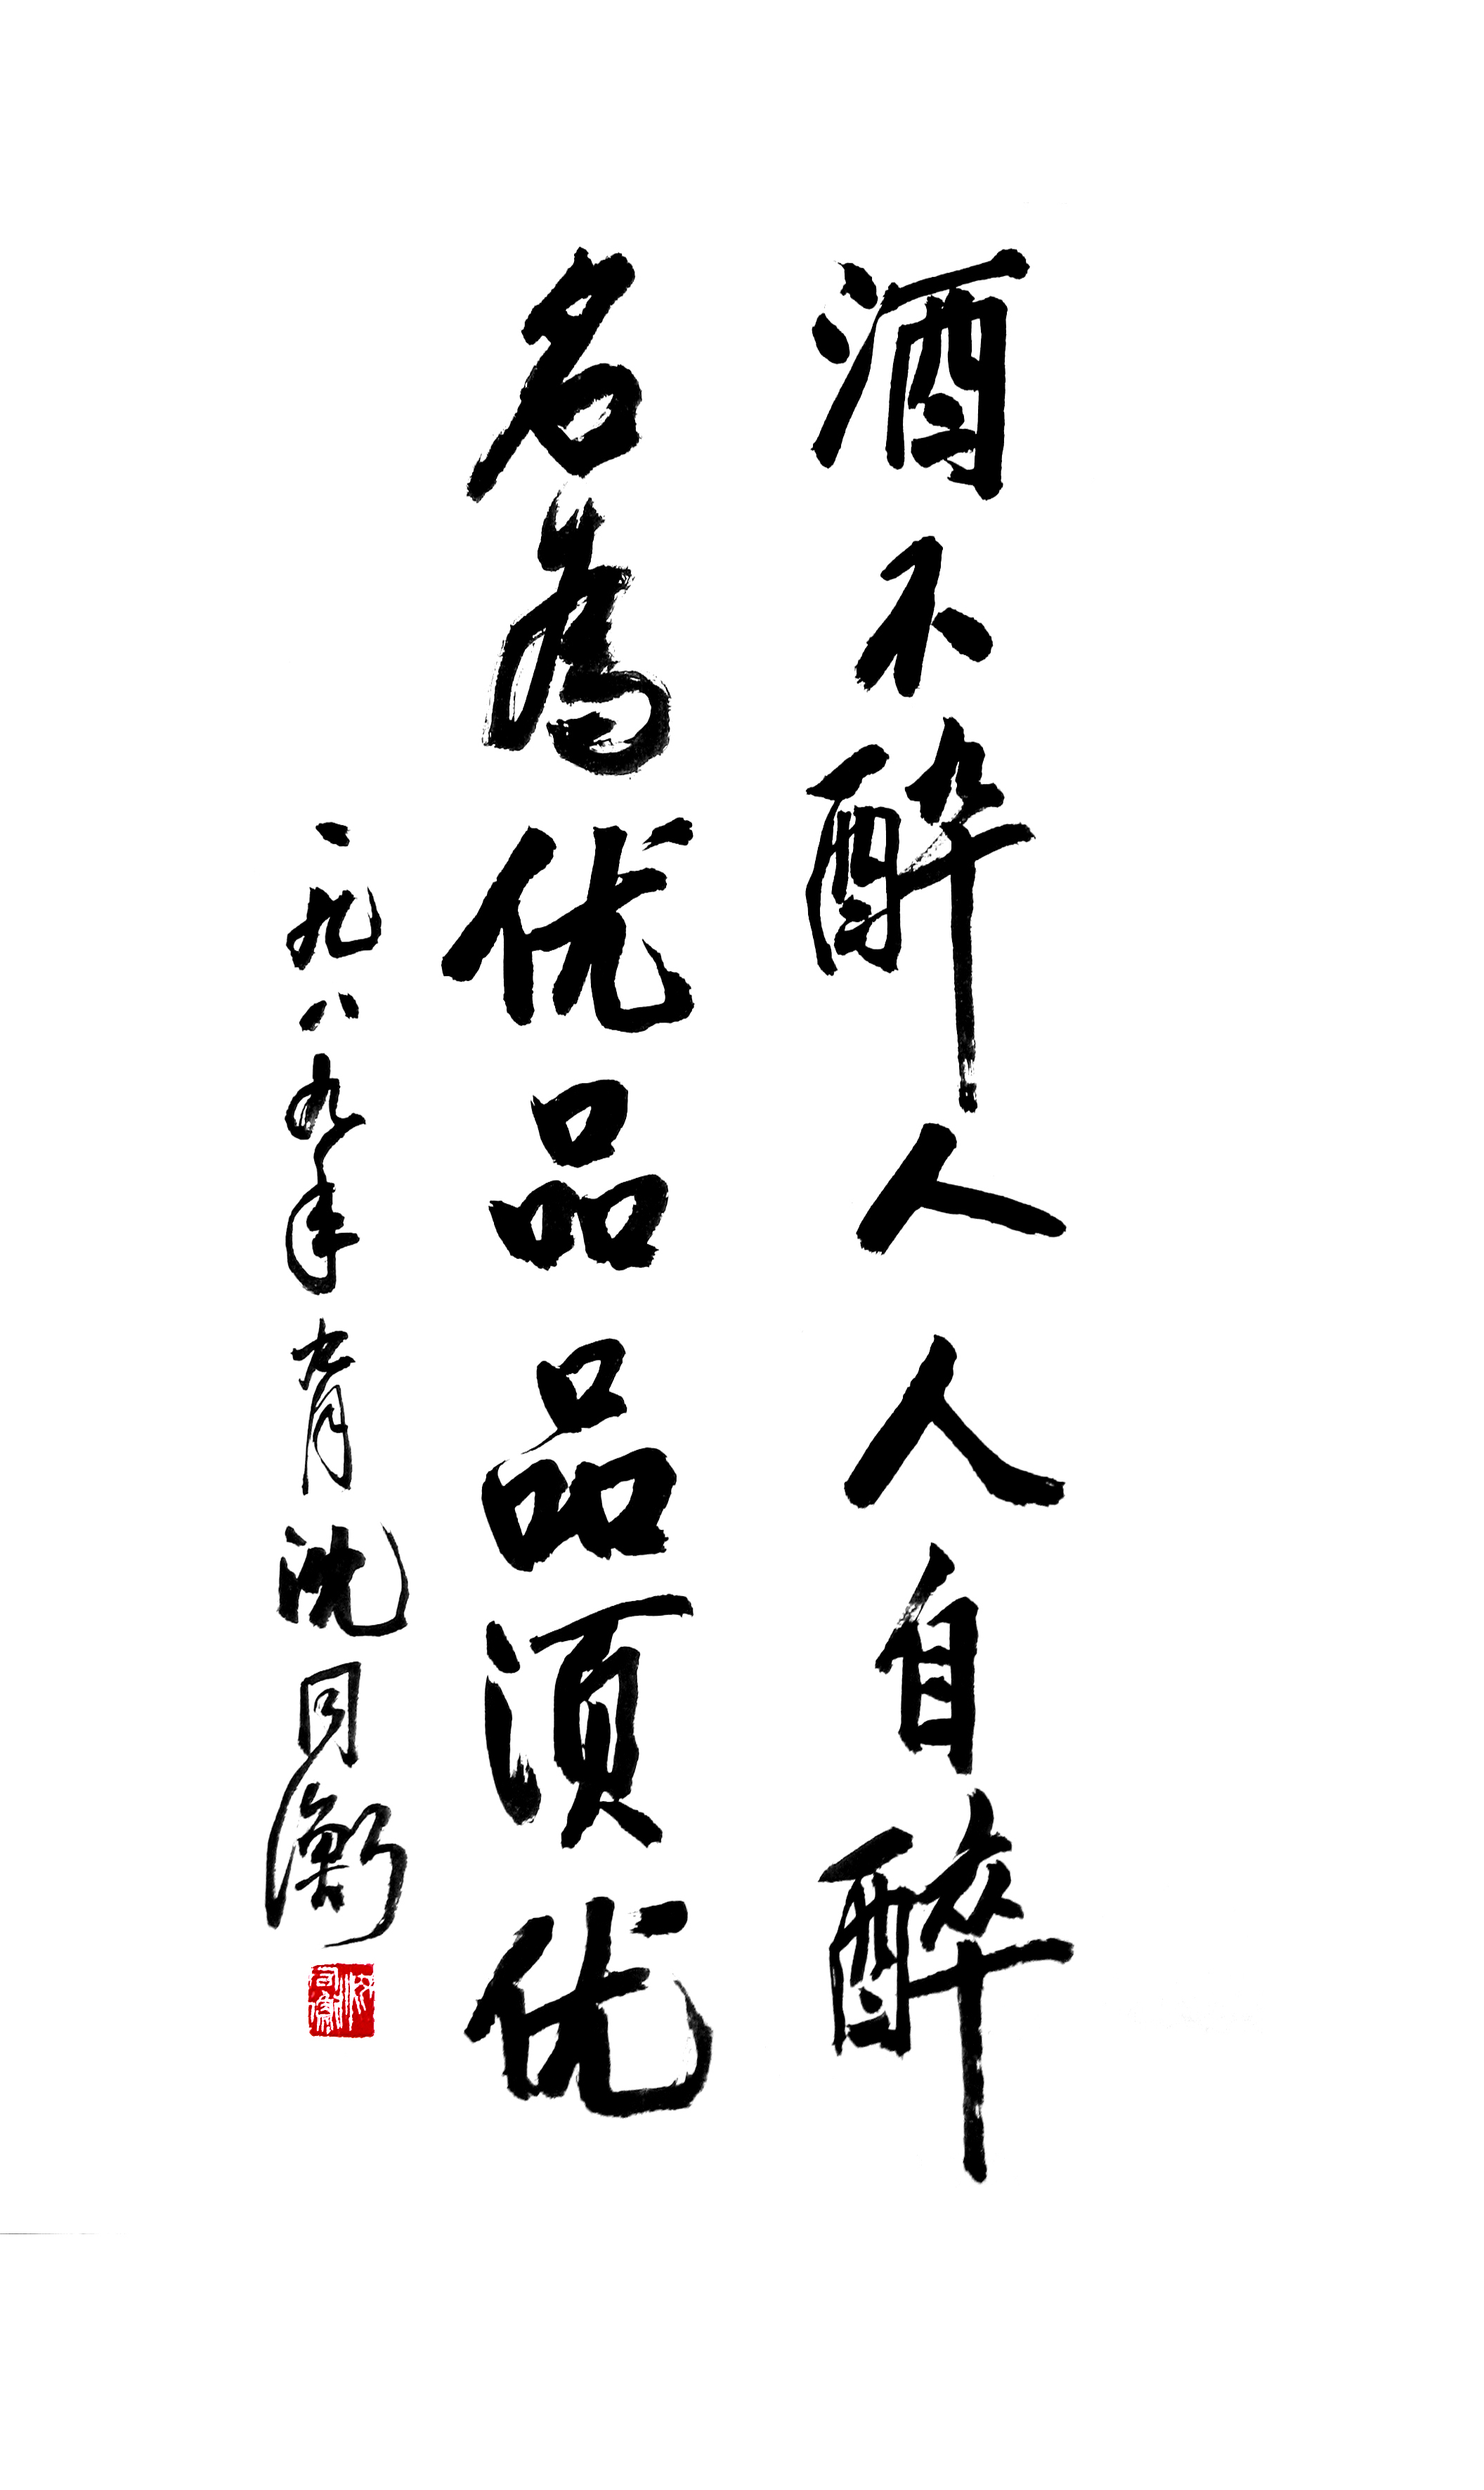 酒不醉人人自醉
名为优品品须优
一九八九年育沈同衡
沈同衡